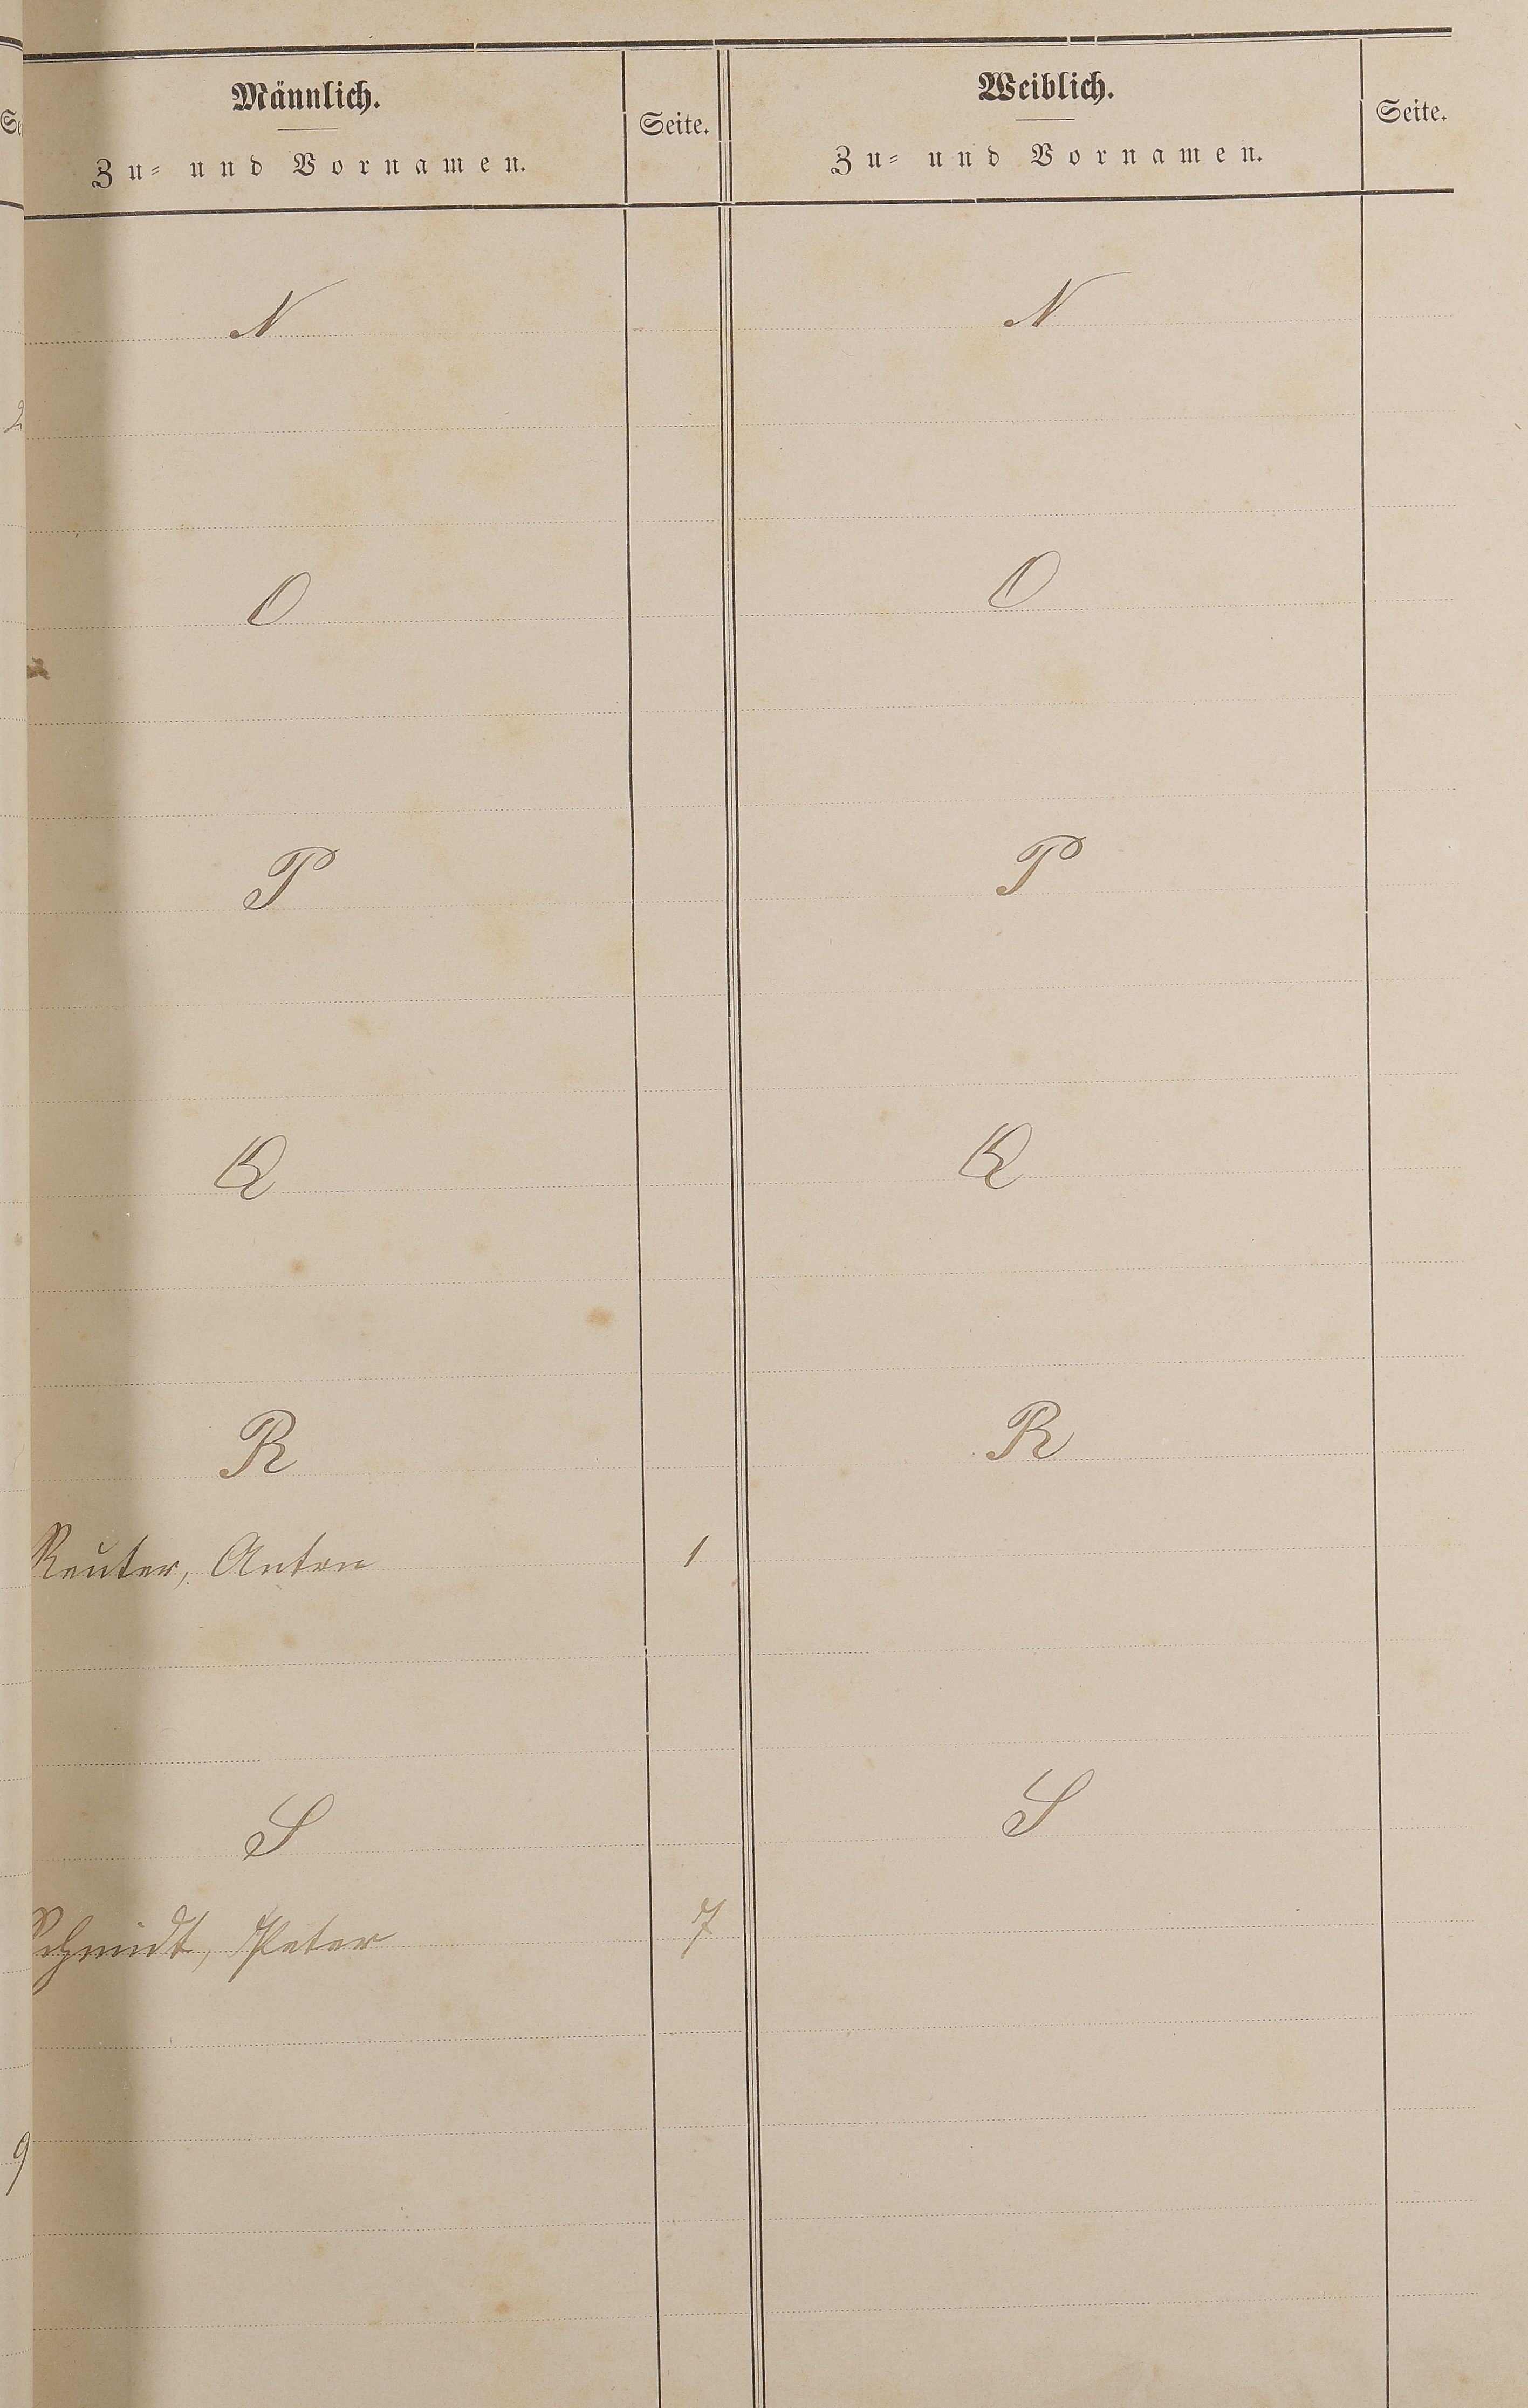 Männlich. Seite. Weiblich. Seite.
Zu- und Vornamen. Zu- und Vornamen.
N N
2
O O
P P
Q Q
R R
Reuter, Anton 1
S S
Schmidt, Peter 7
9